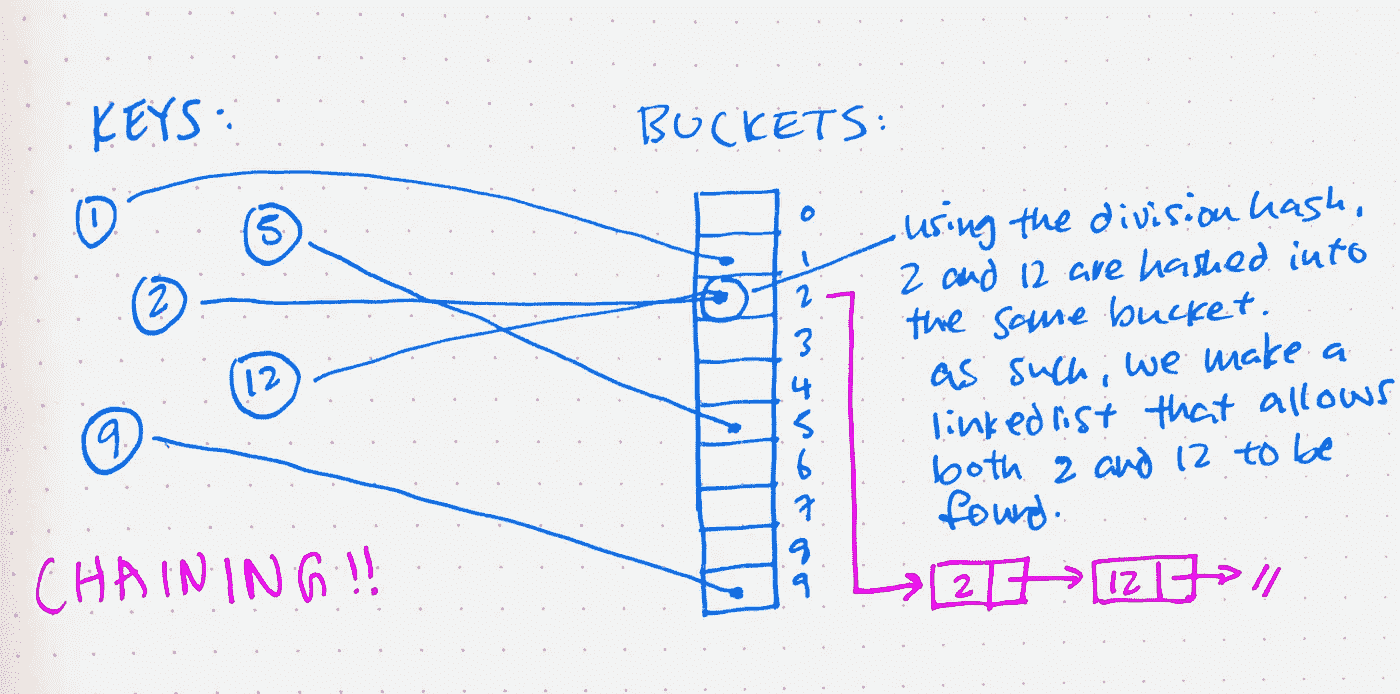 KEYS:
BUCKETS:
1
5
2
12
9
0
1
2
3
4
5
6
7
9
9
using the division hash,
2 and 12 are hashed into
the same bucket.
as such, we make a
linked list that allows
both 2 and 12 to be
found.
CHAINING!!
2 12 //